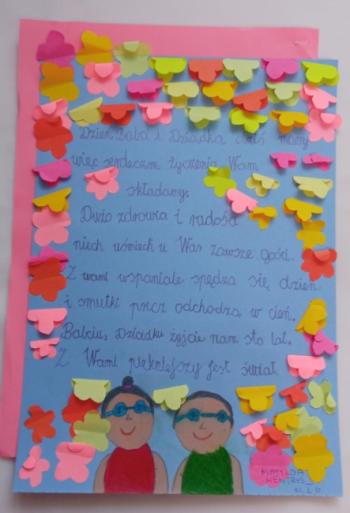 Dzień Babci i Dziadka dziś mamy
więc serdeczne życzenia Wam
składamy.
Dużo zdrowia i radości
niech uśmiech u Was zawsze gości.
Z wami wspaniale spędza się dzień
i smutki precz odchodzą w cień.
Babciu, Dziadku żyjcie nam sto lat.
Z Wami piękniejszy jest świat
MATYLDA